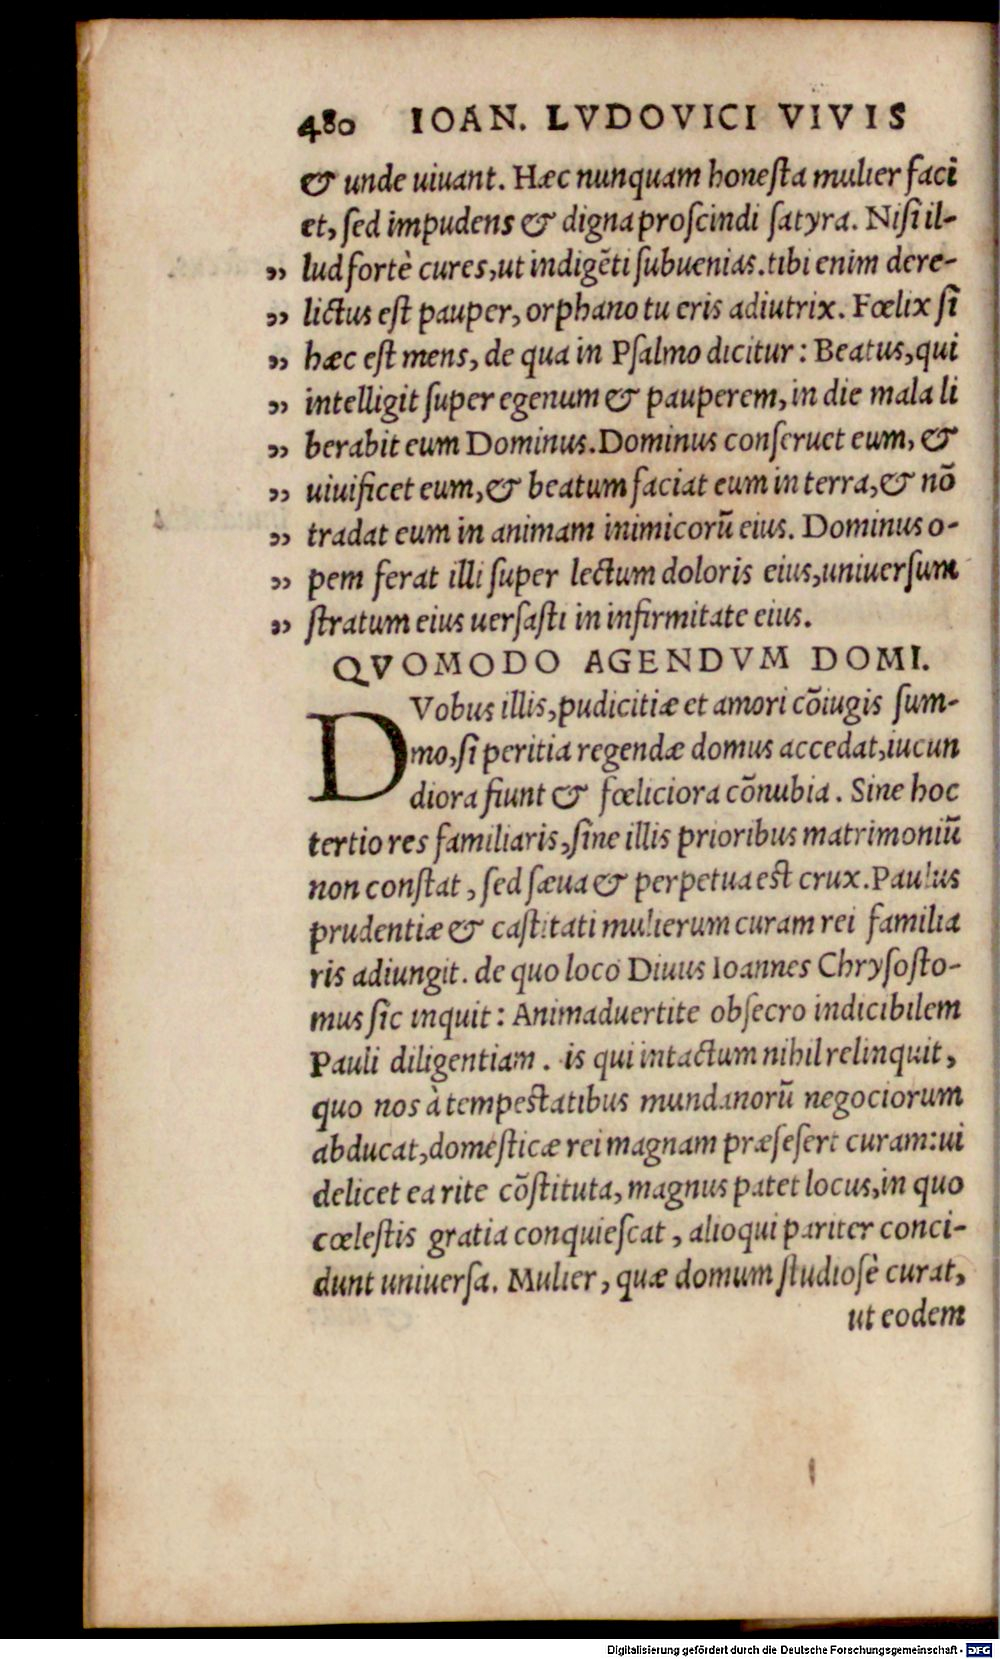 480 IOAN. LVDOVICI VIVIS
& unde uiuant. Hæc nunquam honeſta mulier faci
et, ſed impudens & digna proſcindi ſatyra. Niſi il-
„ lud fortè cures, ut indigẽti ſubuenias. tibi enim dere-
„ lictus eſt pauper, orphano tu eris adiutrix. Fœlix ſi
„ hæc eſt mens, de qua in Pſalmo dicitur: Beatus, qui
„ intelligit ſuper egenum & pauperem, in die mala li
„ berabit eum Dominus. Dominus conſeruet eum, &
„ uiuificet eum, & beatum faciat eum in terra, & nõ
„ tradat eum in animam inimicorũ eius. Dominus o-
„ pem ferat illi ſuper lectum doloris eius, uniuerſum
„ ſtratum eius uerſaſti in infirmitate eius.
QVOMODO AGENDVM DOMI.
DVobus illis, pudicitiæ et amori cõiugis ſum-
mo, ſi peritia regendæ domus accedat, iucun
diora fiunt & fœliciora cõnubia. Sine hoc
tertio res familiaris, ſine illis prioribus matrimoniũ
non conſtat, ſed ſæua & perpetua eſt crux. Paulus
prudentiæ & caſtitati mulierum curam rei familia
ris adiungit. de quo loco Diuus Ioannes Chryſoſto-
mus ſic inquit: Animaduertite obſecro indicibilem
Pauli diligentiam. is qui intactum nihil relinquit,
quo nos à tempeſtatibus mundanorũ negociorum
abducat, domeſticæ rei magnam præſefert curam: ui
delicet ea rite cõſtituta, magnus patet locus, in quo
cœleſtis gratia conquieſcat, alioqui pariter conci-
dunt uniuerſa. Mulier, quæ domum ſtudioſè curat,
ut eodem
Digitalisierung gefördert durch die Deutsche Forschungsgemeinschaft - DFG